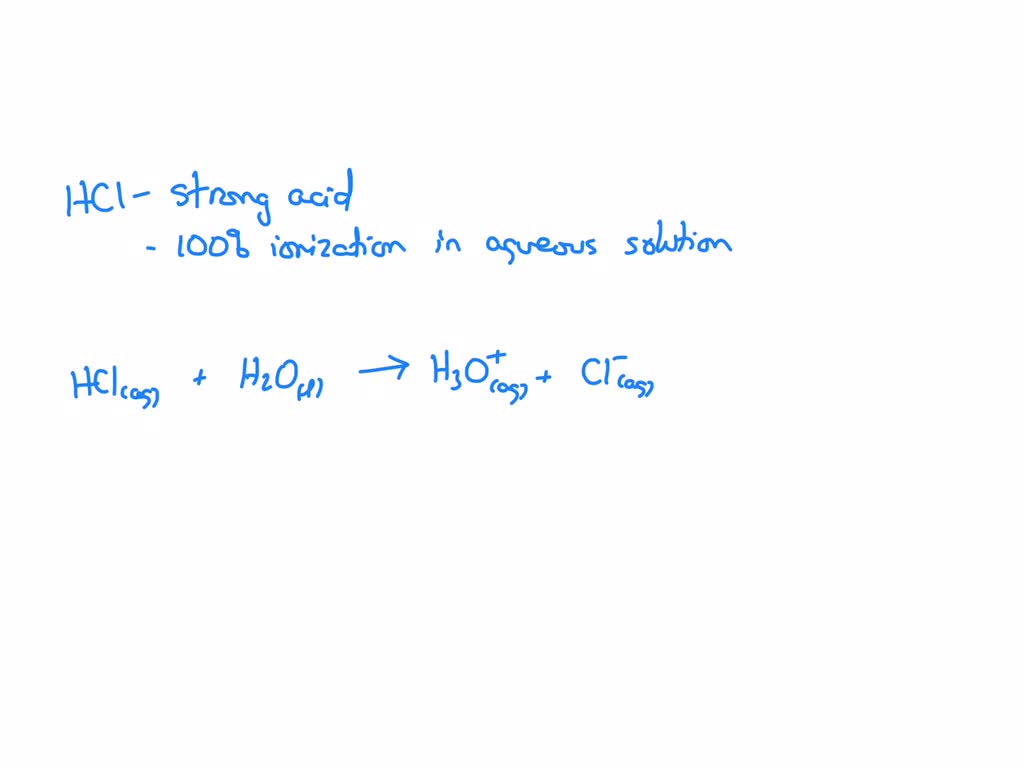 HCl - strong acid
- 100% ionization in aqueous solution
HCl(aq) + H₂O(l) → H₃O⁺(aq) + Cl⁻(aq)